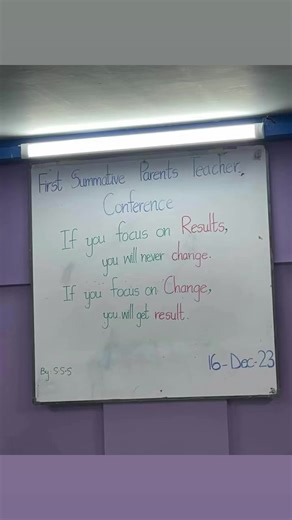 First Summative Parents Teacher,
Conference
If you focus on Results,
you will never change.
If you focus on Change,
you will get result.
16-Dec-23
By:S.S.S